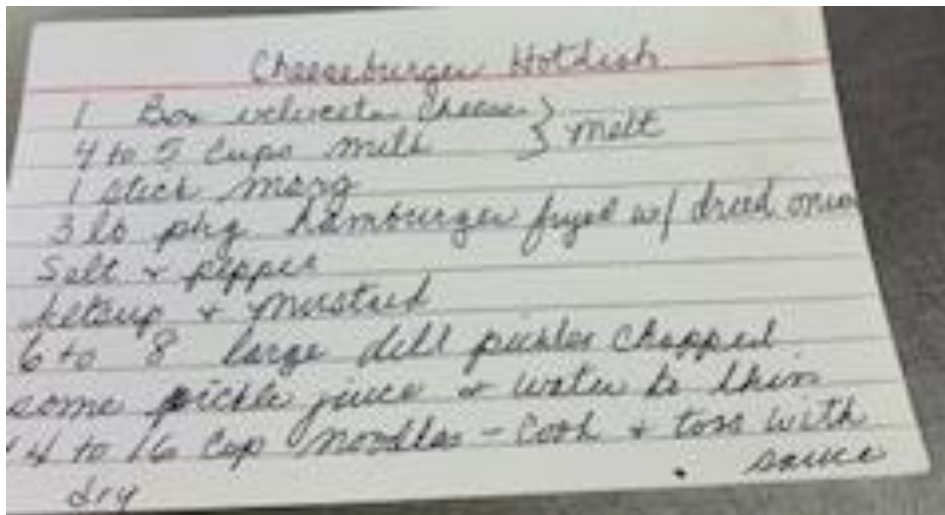 Cheeseburger Hotdish
1 Box velveeta Cheese } melt
4 to 5 Cups milk
1 stick marg
3 lb pkg hamburger fryed w/ dried onion
Salt & pepper
ketsup & Mustard
6 to 8 large dill pickles chopped
some pickle juice & water to thin
14 to 16 Cup Noodles - Cook & toss with
dry sauce